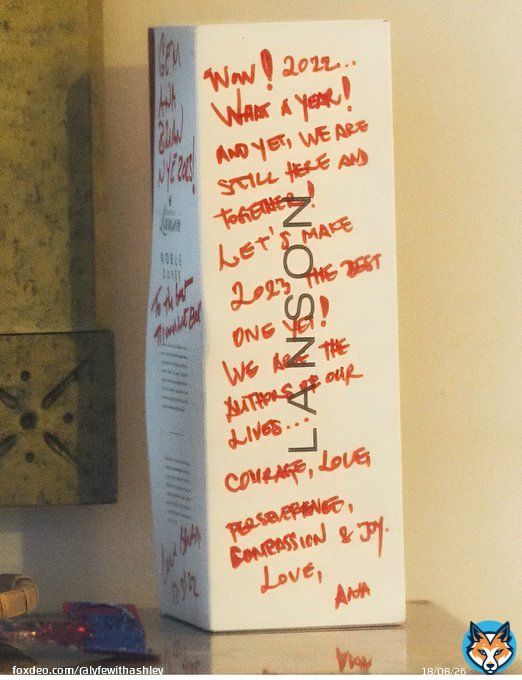 WOW! 2022..
WHAT A YEAR!
AND YET, WE ARE
STILL HERE AND
TOGETHER!
LET'S MAKE
2023 THE BEST
ONE YET!
WE ARE THE
AUTHORS OF OUR
LIVES...
COURAGE, LOVE,
PERSEVERENCE,
COMPASSION & JOY.
LOVE,
ANA
LANSON
GEM
ANA
BRIAN
NYE 2023!
Lanson
NOBLE
CUVÉE
To the best
foxdeo.com/@lyfewithashley
18/08/26